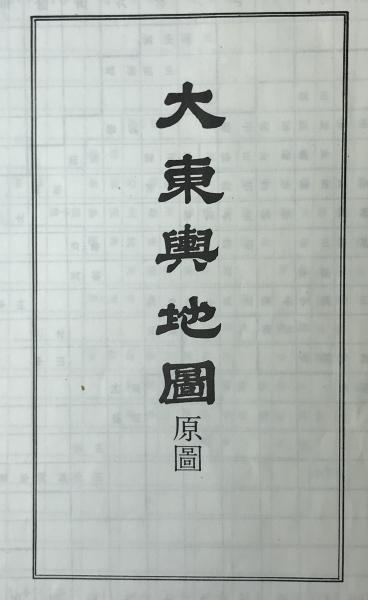 大東輿地圖原圖